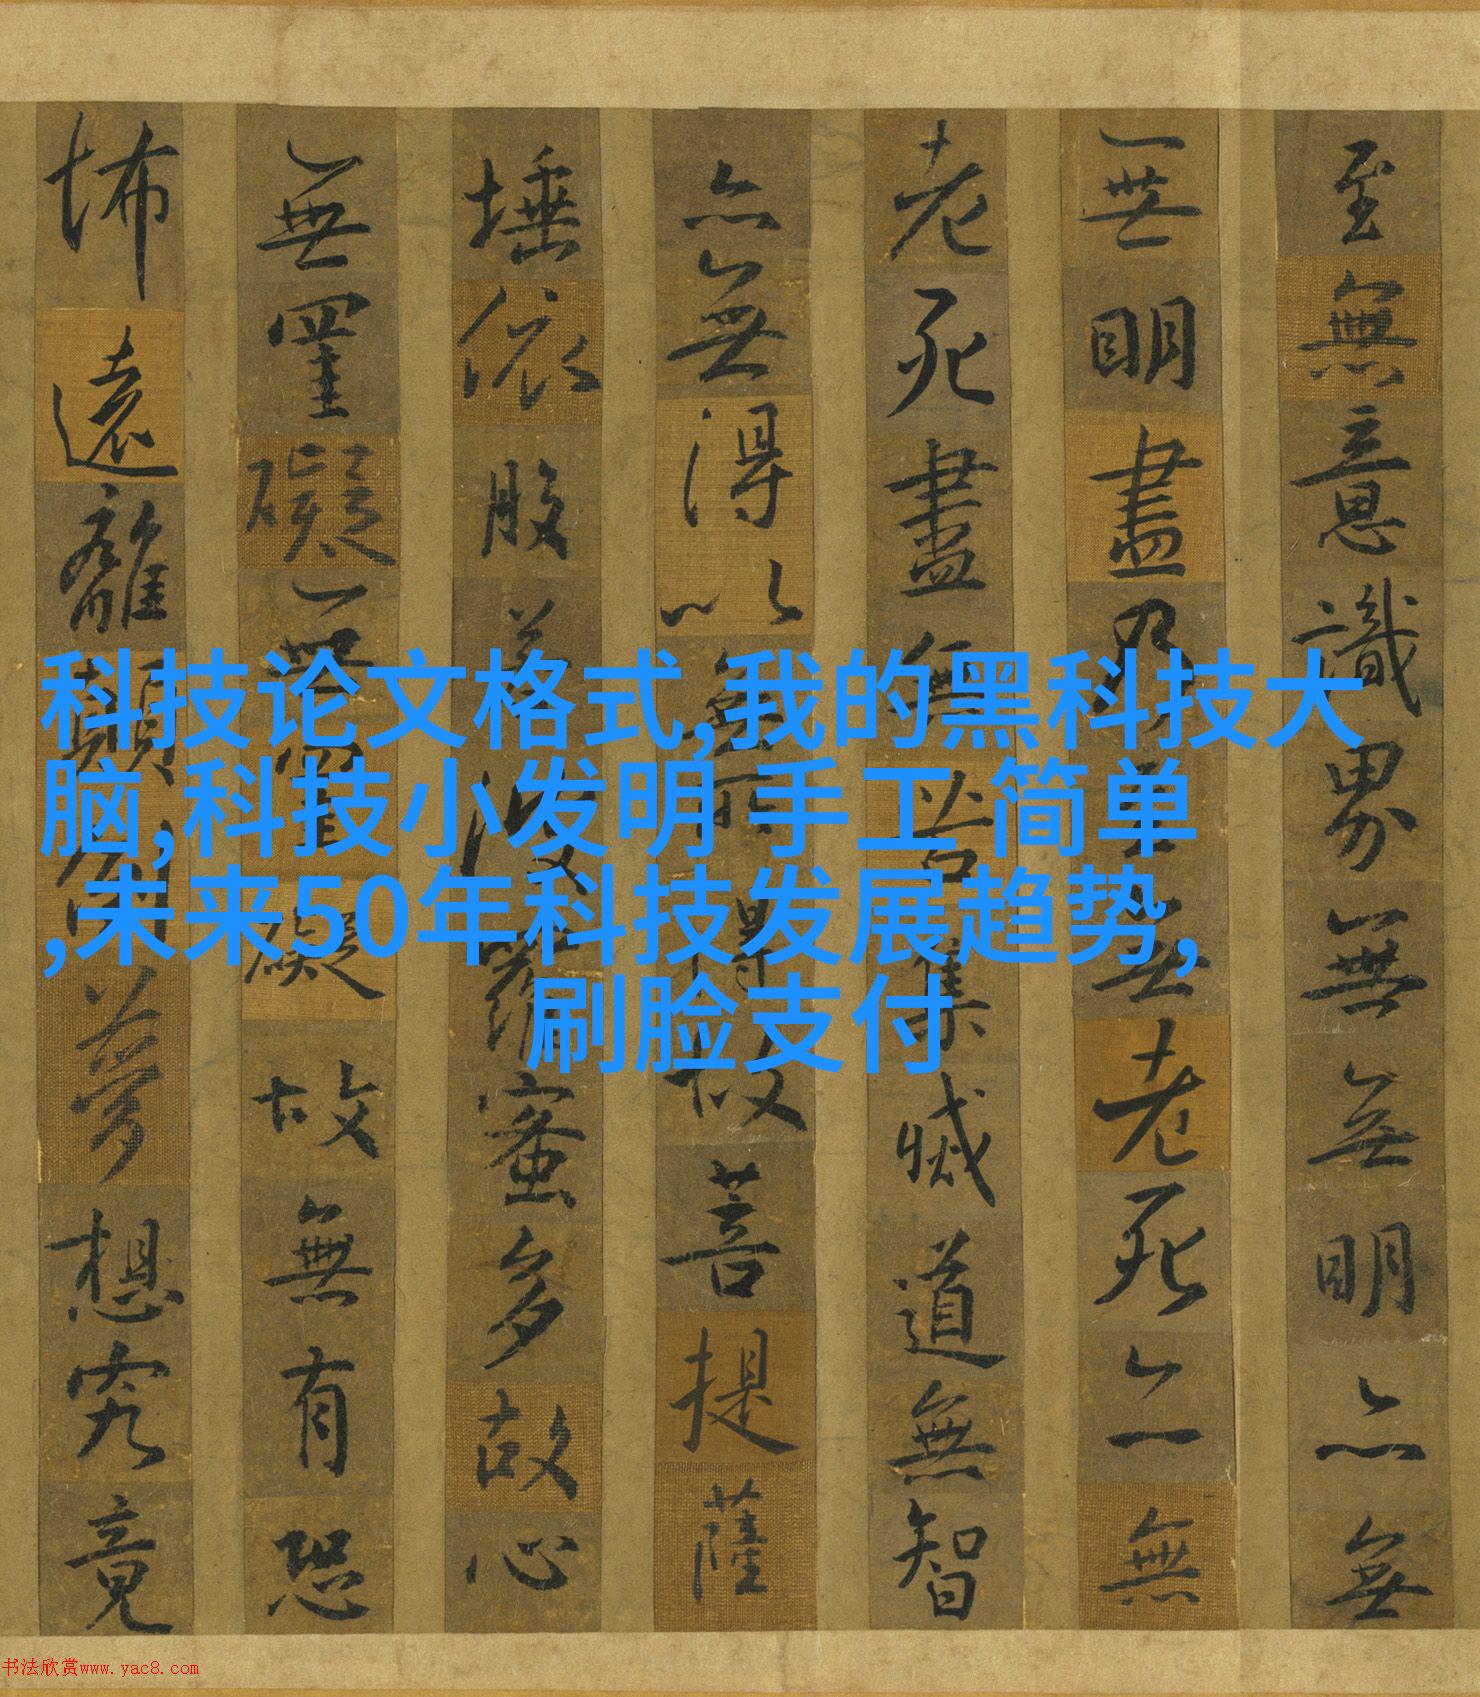 至無意識界無無明亦無
無明盡乃至無老死亦無
老死盡無苦集滅道無智
亦無得以無所得故菩提薩
埵依般若波羅蜜多故心
無罣礙無罣礙故無有恐
怖遠離顛倒夢想究竟
科技论文格式,我的黑科技大
脑,科技小发明 手工 简单
,未来50年科技发展趋势,
刷脸支付
书法欣赏www.yac8.com